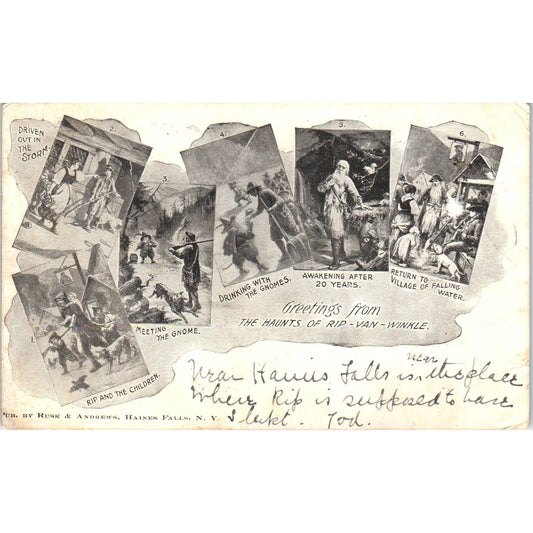 2.
DRIVEN
OUT IN
THE
STORM.
3.
4.
5.
6.
MEETING THE GNOME.
DRINKING WITH
THE GNOMES.
AWAKENING AFTER
20 YEARS.
RETURN TO
VILLAGE OF FALLING
WATER.
1.
RIP AND THE CHILDREN.
Greetings from
THE HAUNTS OF RIP-VAN-WINKLE.
near
Near Haines Falls is the place
Where Rip is supposed to have
Slept. Tod.
PUB. BY RUSK & ANDREWS, HAINES FALLS, N. Y.